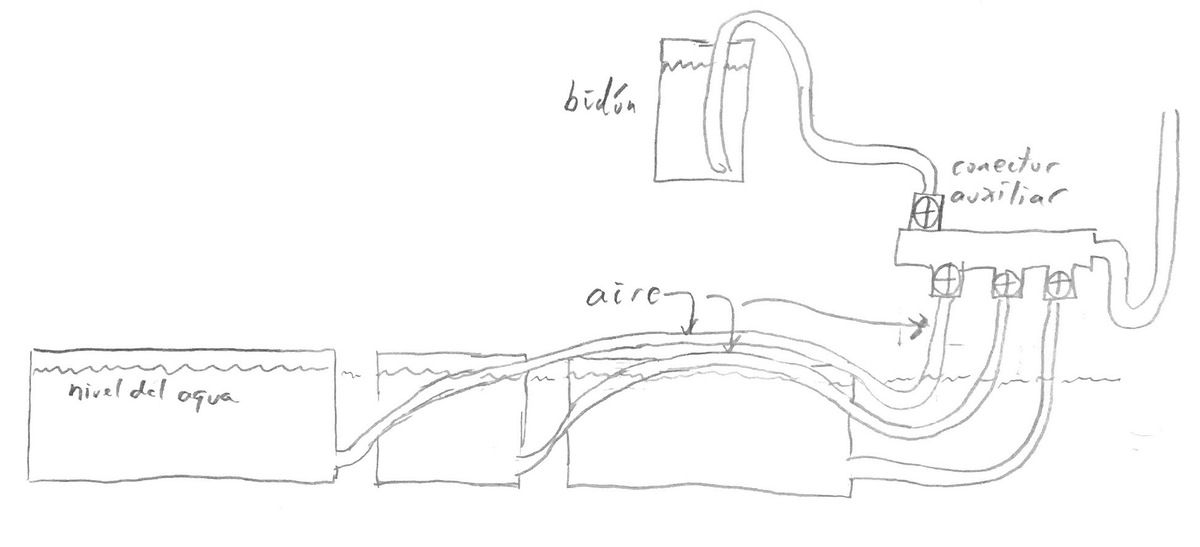 bidón
conector
auxiliar
aire
nivel del agua